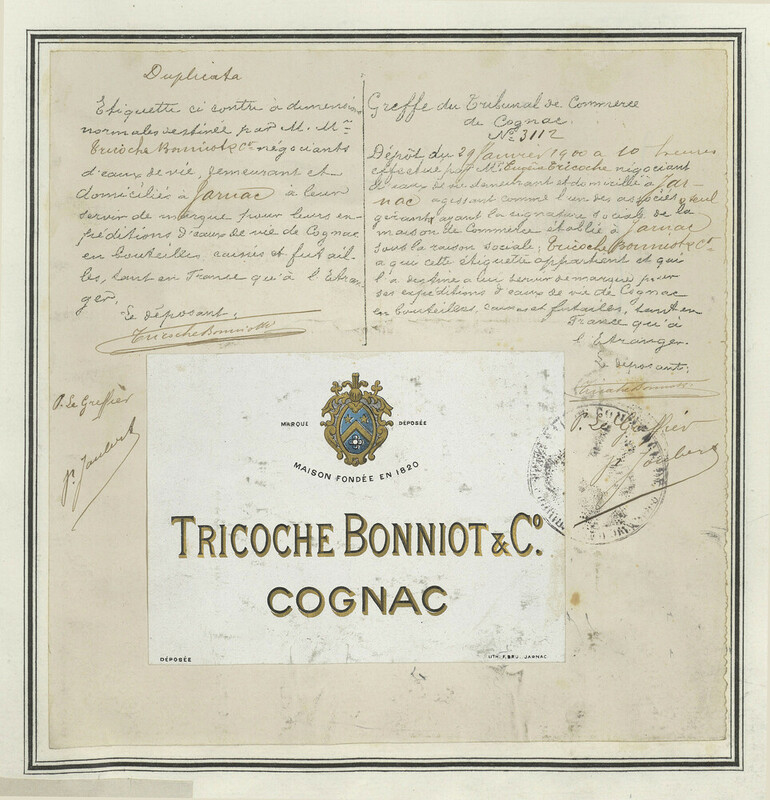 Duplicata
Etiquette ci contre à dimensions
normales destinée par M. Mrs
Tricoche Bonniot & Co négociants
d'eaux de vie, demeurant et
domiciliés à Jarnac à leur
servir de marque pour leurs ex-
péditions d'eaux de vie de Cognac
en bouteilles, caisses et futail-
les, tant en France qu'à l'Etran-
ger,
Le déposant:
Tricoche Bonniot & Co
Greffe du Tribunal de Commerce
de Cognac.
No 3112
Dépôt du 29 Janvier 1900 à 10 heures
effectué par M. Eugène Tricoche négociant
d'eaux de vie demeurant et domicilié à Jar-
nac agissant comme l'un des associés, seul
gérant, ayant la signature sociale de la
maison de Commerce établie à Jarnac
sous la raison sociale; Tricoche Bonniot & Co
a qui cette étiquette appartient et qui
l'a destine a lui servir de marque pour
ses expéditions d'eaux de vie de Cognac
en bouteilles, caisses et futailles, tant en
France qu'à
l'Etranger.
Le déposant:
Tricoche Bonniot
P. Le Greffier
P. Joubert
P. Le Greffier
Joubert
MARQUE DÉPOSÉE
MAISON FONDÉE EN 1820
TRICOCHE BONNIOT & Co.
COGNAC
DÉPOSÉE
LITH. F. BRU. JARNAC